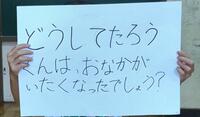 どうしてたろう
くんは、おなかが
いたくなったでしょう?